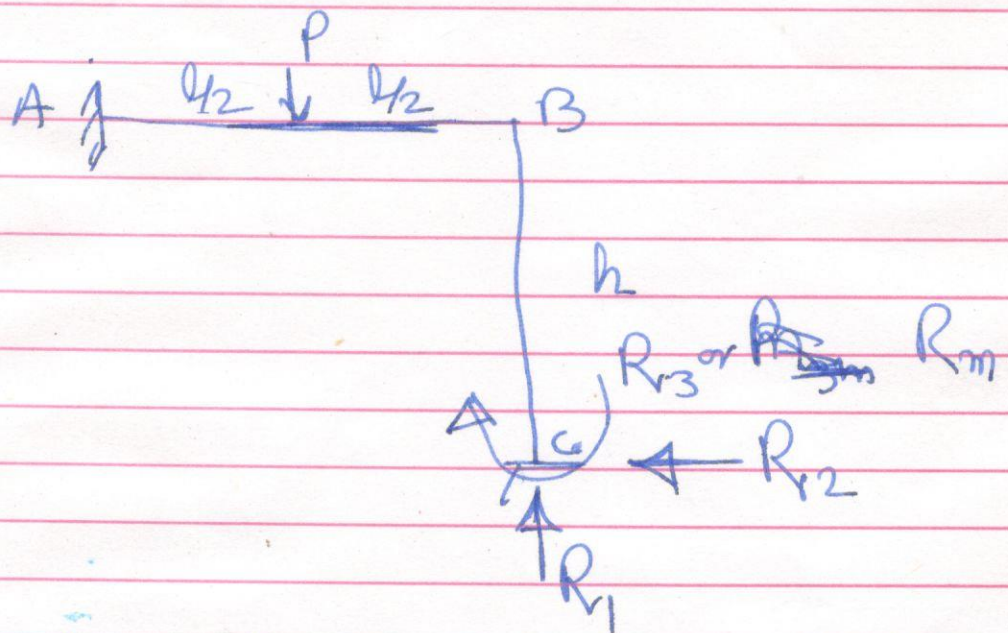 P
A l/2 l/2 B
h
R3 or Rm
C R2
R1